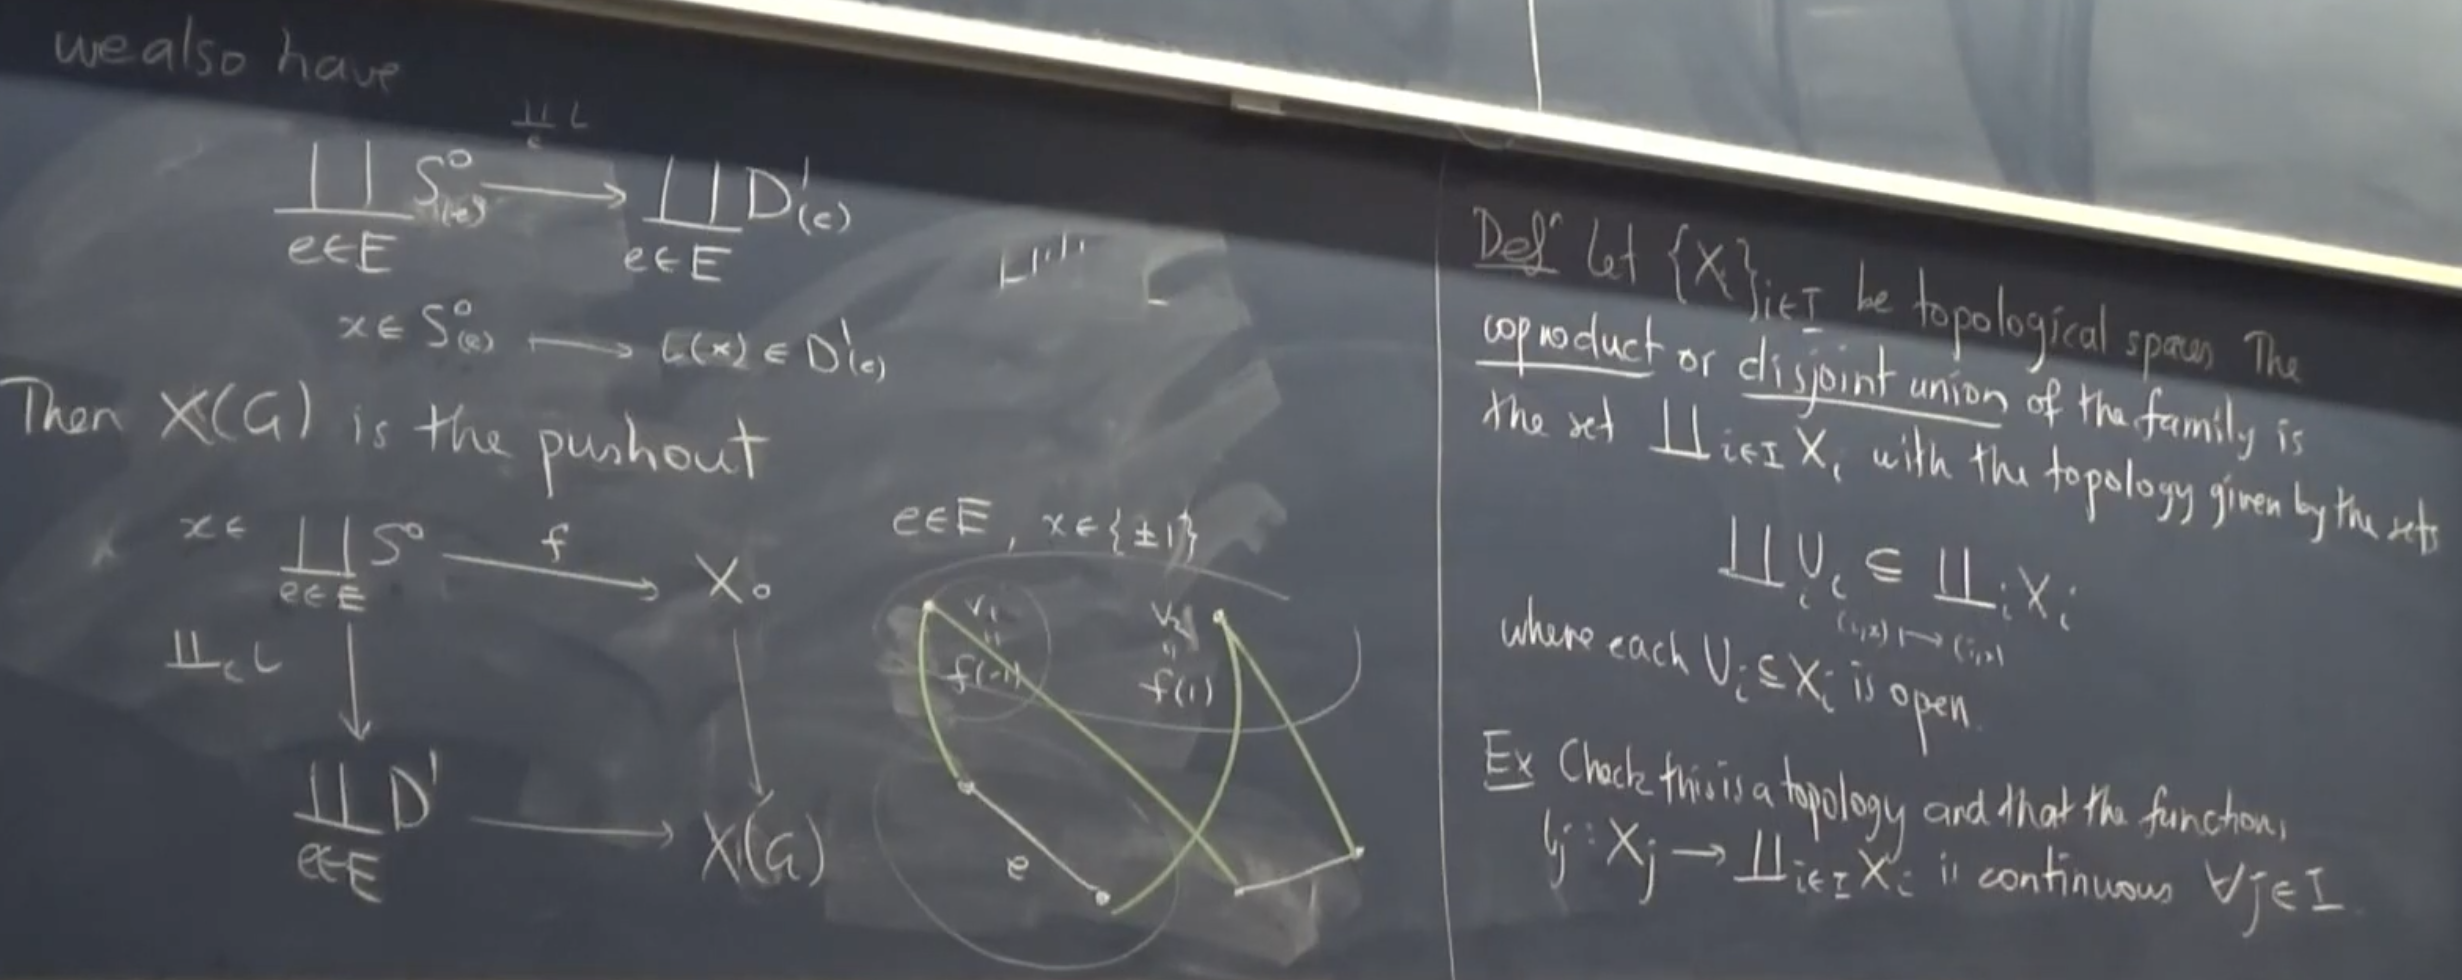 we also have
∐_e ι
∐_{e∈E} S⁰_(e) ⟶ ∐_{e∈E} D¹_(e)
x ∈ S⁰_(e) ⟼ ι(x) ∈ D¹_(e)
Then X(G) is the pushout
x ∈ ∐_{e∈E} S⁰ ⟶ X₀
f
∐_e ι
∐_{e∈E} D¹ ⟶ X(G)
e∈E, x∈{±1}
v₁ = f(-1)
v₂ = f(1)
e
Defⁿ Let {X}_{i∈I} be topological spaces The
coproduct or disjoint union of the family is
the set ∐_{i∈I} X_i with the topology given by the sets
∐_i U_i ⊆ ∐_i X_i
(i,x) ⟼ (i,x)
where each U_i ⊆ X_i is open.
Ex Check this is a topology and that the functions
ι_j : X_j → ∐_{i∈I} X_i is continuous ∀j∈I.